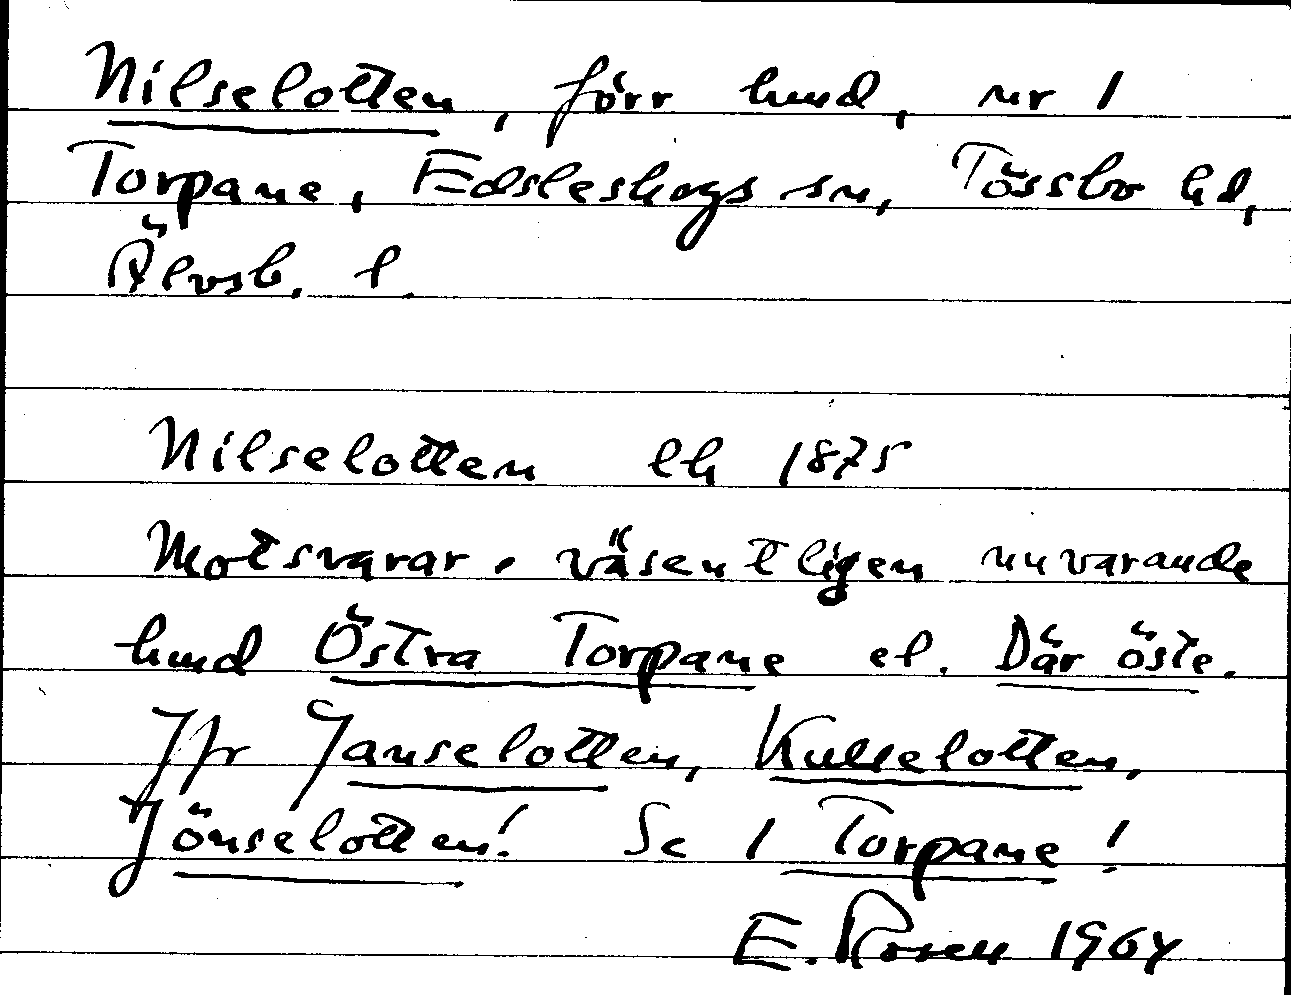 Nilselotten, förr hmd, nr 1
Torpane, Edsleskogs sn, Tössbo hd,
Älvsb. l.
Nilselotten lh 1875
Motsvarar väsentligen nuvarande
hmd Östra Torpane el. Där öste.
Jfr Janselotten, Kullelotten,
Jönselotten! Se 1 Torpane!
E. Rosell 1964